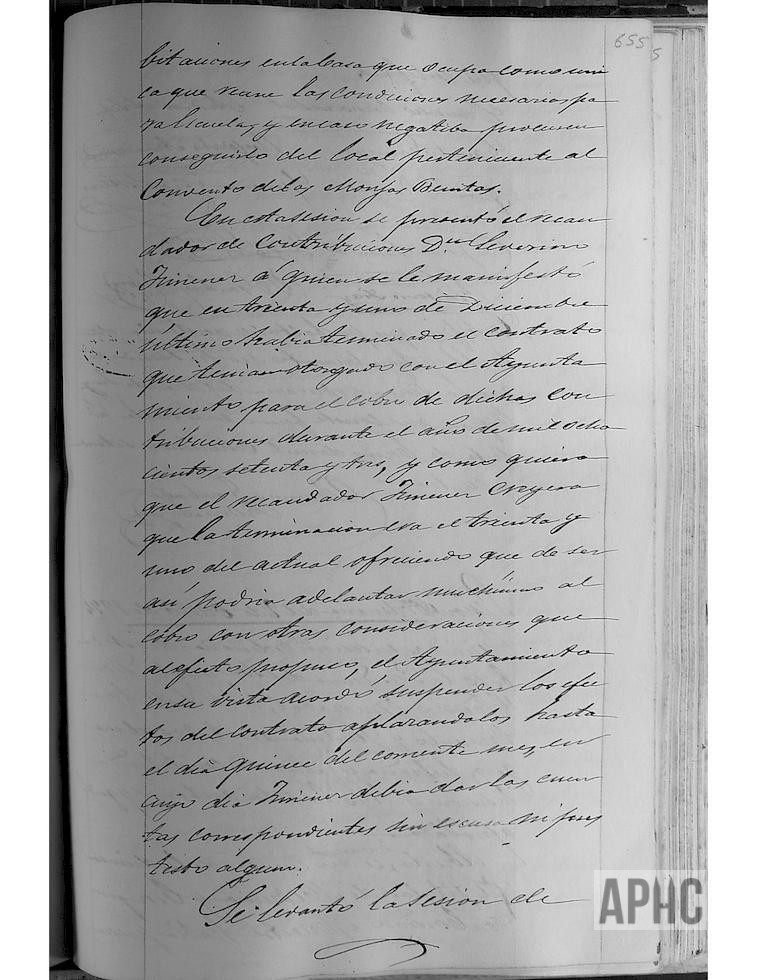 655
5
bitaciones en la Casa que ocupa como uni
ca que reune las condiciones necesarias pa
ra Escuelas, y en caso negatibo procuren
conseguirlo del local perteneciente al
Convento de las Monjas Benitas.
En esta sesion se presentó el recau
dador de Contribuciones Dn Severino
Jimenez á quien se le manifestó
que en treinta y uno de Diciembre
último habia terminado el contrato
que tenia otorgado con el Ayunta
miento para el cobro de dichas con
tribuciones durante el año de mil ocho
cientos setenta y tres, y como quiera
que el recaudador Jimenez creyera
que la terminacion era el treinta y
uno del actual ofreciendo que de ser
así podria adelantar muchísimo al
cobro con otras consideraciones que
al efecto propuso, el Ayuntamiento
en su vista acordó suspender los efec
tos del contrato aplazandolos hasta
el dia quince del corriente mes, en
cuyo dia Jimenez debia dar las cuen
tas correspondientes sin escusa ni pres
testo alguno.
Se levantó la sesion de
APHC